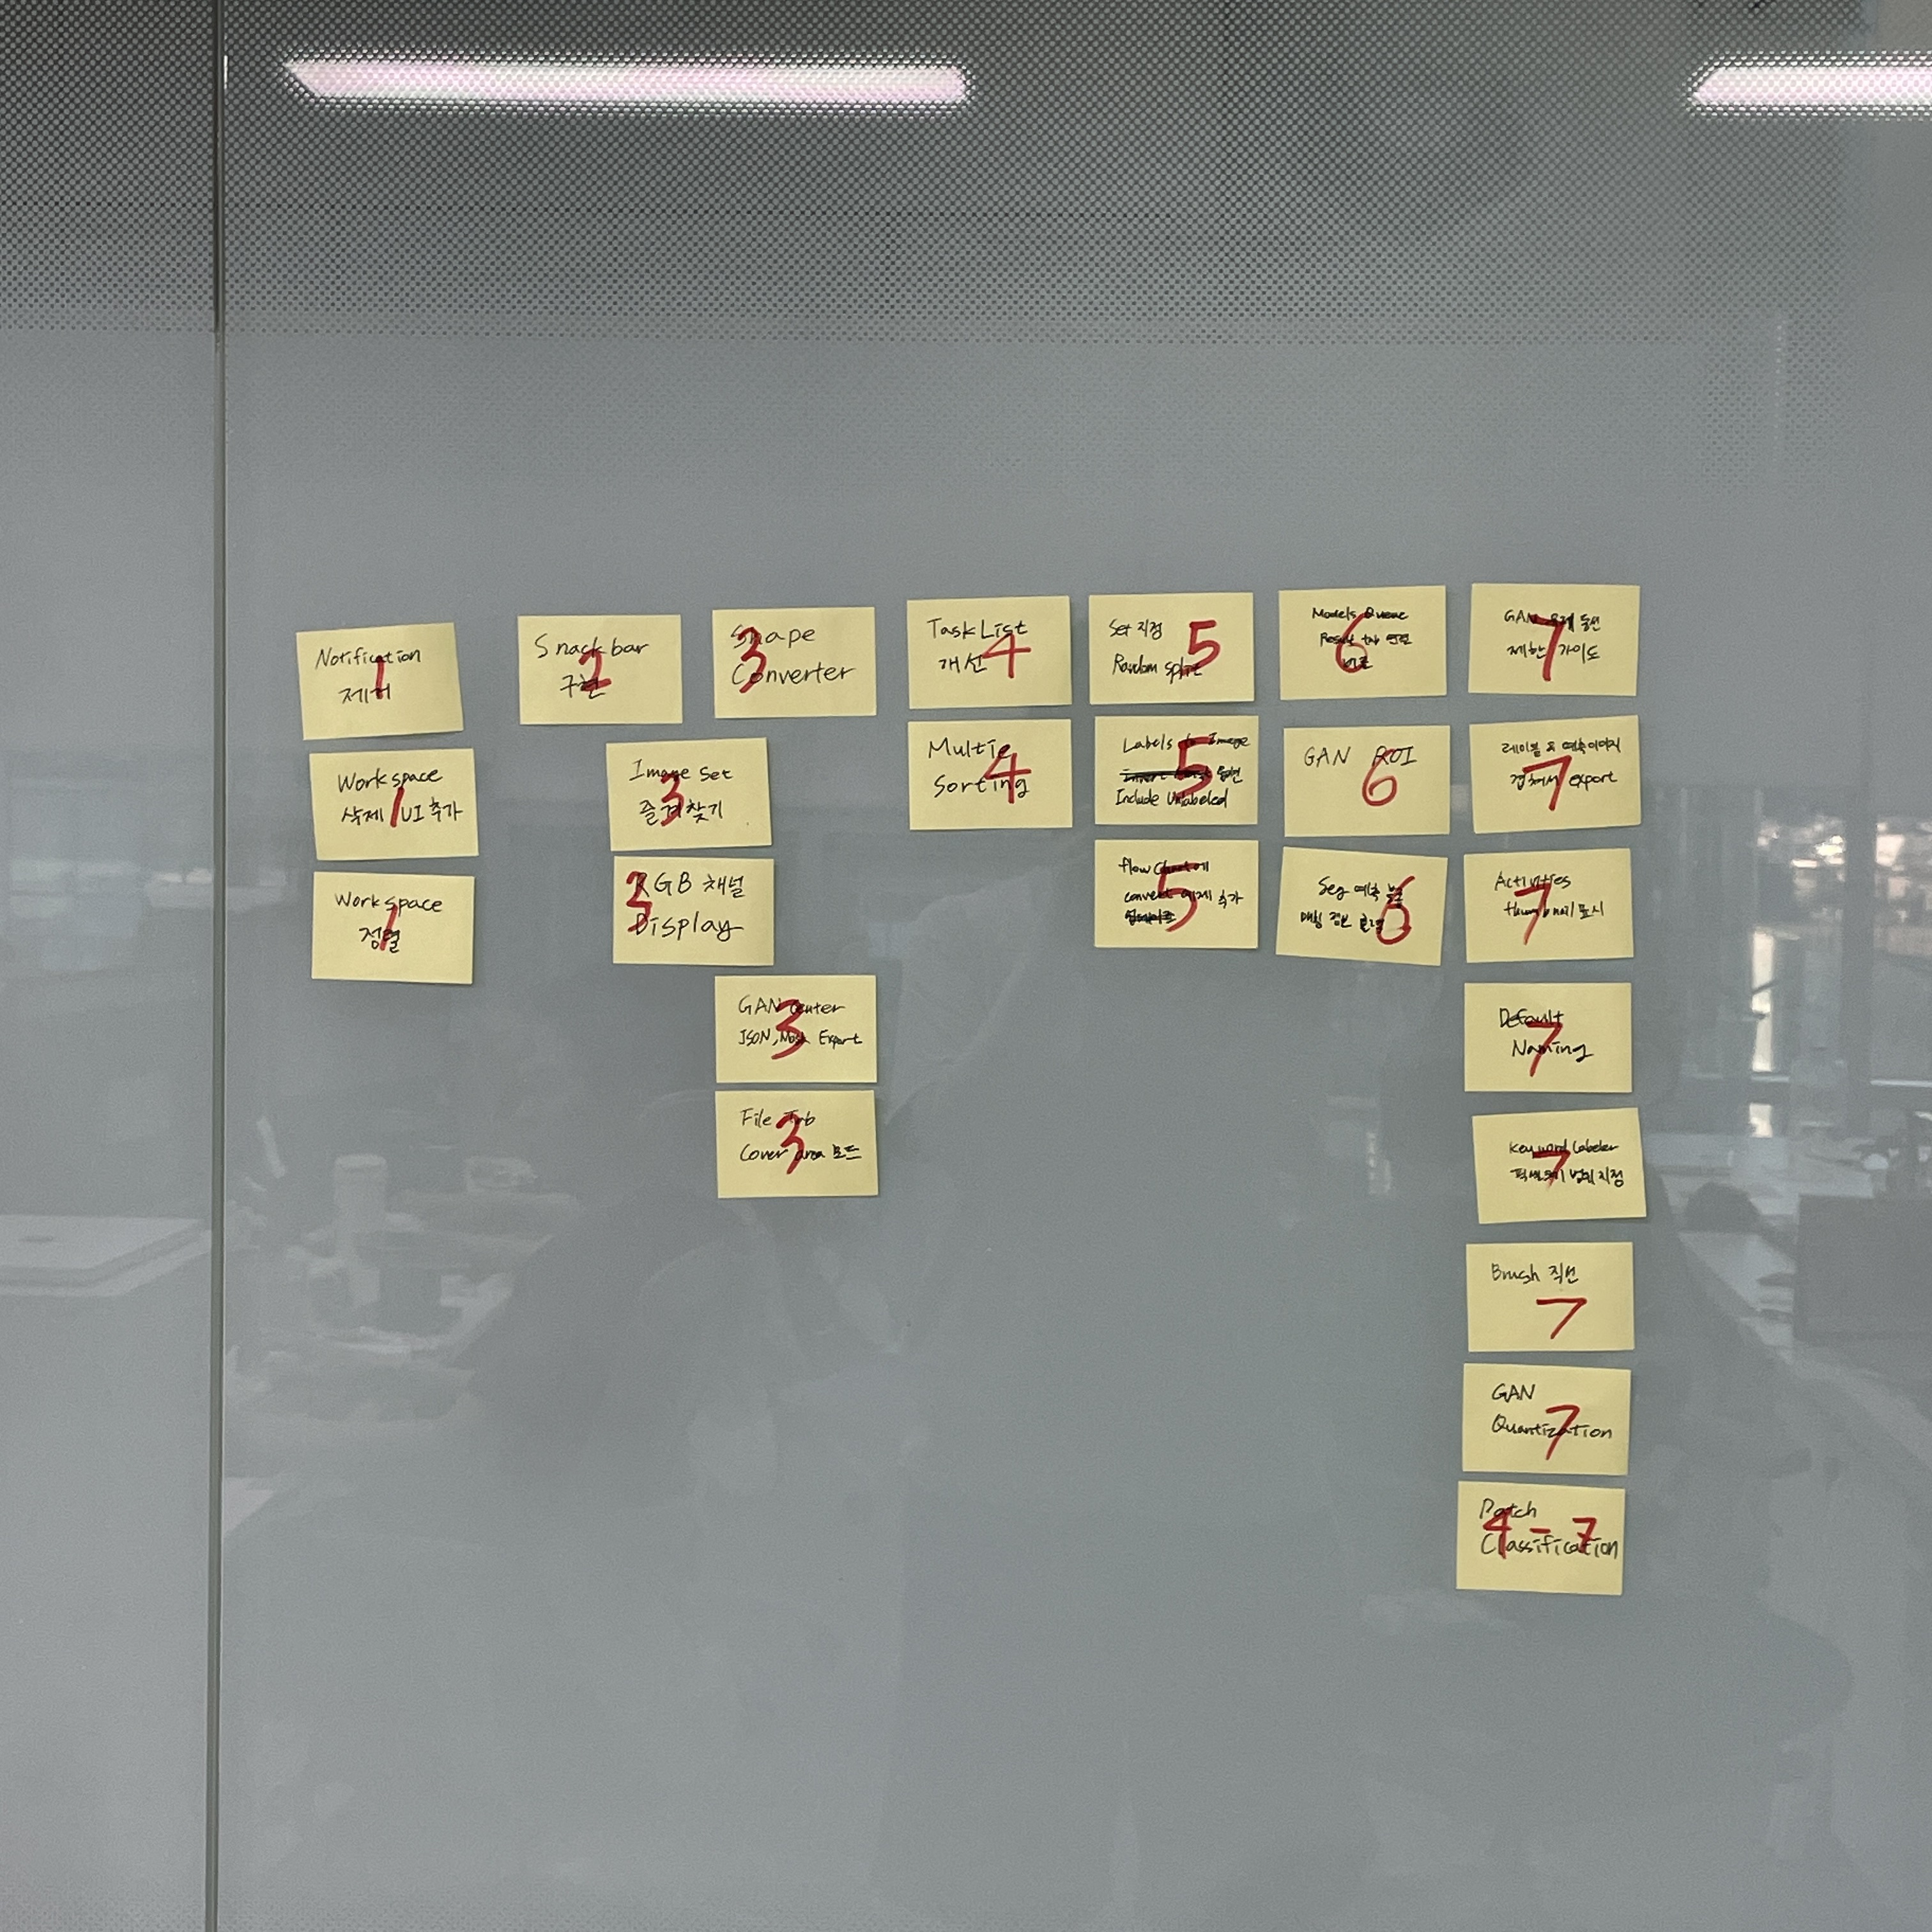 Notification
제거
1
Workspace
삭제 UI 추가
1
Workspace
정렬
1
Snack bar
구현
2
Shape
Converter
3
Image Set
즐겨찾기
3
RGB 채널
Display
3
GAN Center
JSON, Mask Export
3
File Tab
Cover area 모드
3
Task List
개선
4
Multie
Sorting
4
Set 지정
Random split
5
Labels to Image
Include Unlabeled
5
flow chart에
convert 예제 추가
5
Models Queue
Result tab 연결
6
GAN ROI
6
Seg 예측
매칭 정보
6
GAN
제한 가이드
7
레이블 & 예측이미지
겹쳐서 export
7
Activities
thumbnail 표시
7
Default
Naming
7
Keyword Labeler
픽셀크기 범위 지정
7
Brush 직선
7
GAN
Quantization
7
Patch
Classification
4 - 7